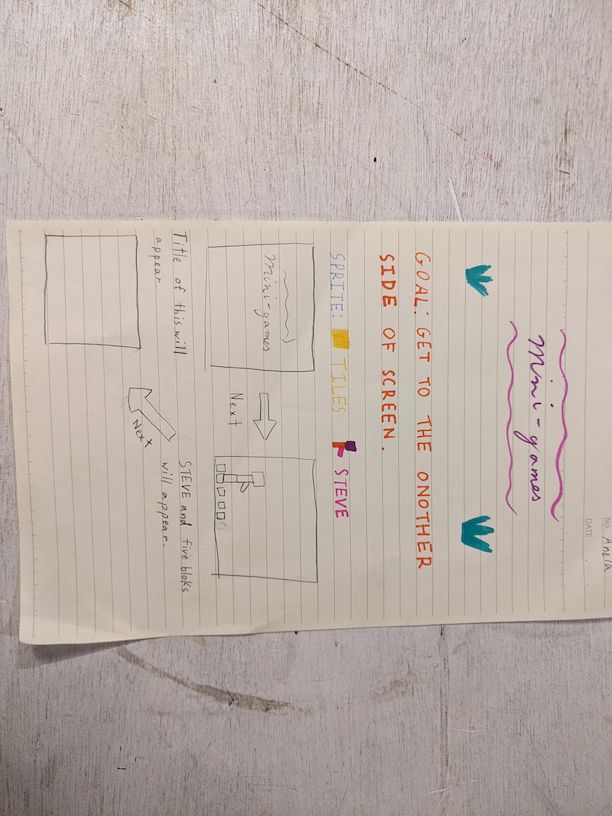 NO. Anela
DATE
Mini-games
GOAL: GET TO THE ONOTHER
SIDE OF SCREEN.
SPRITE: TILES STEVE
Mini-games
Next
Title of this will
appear.
STEVE and five bloks
will appear.
Next